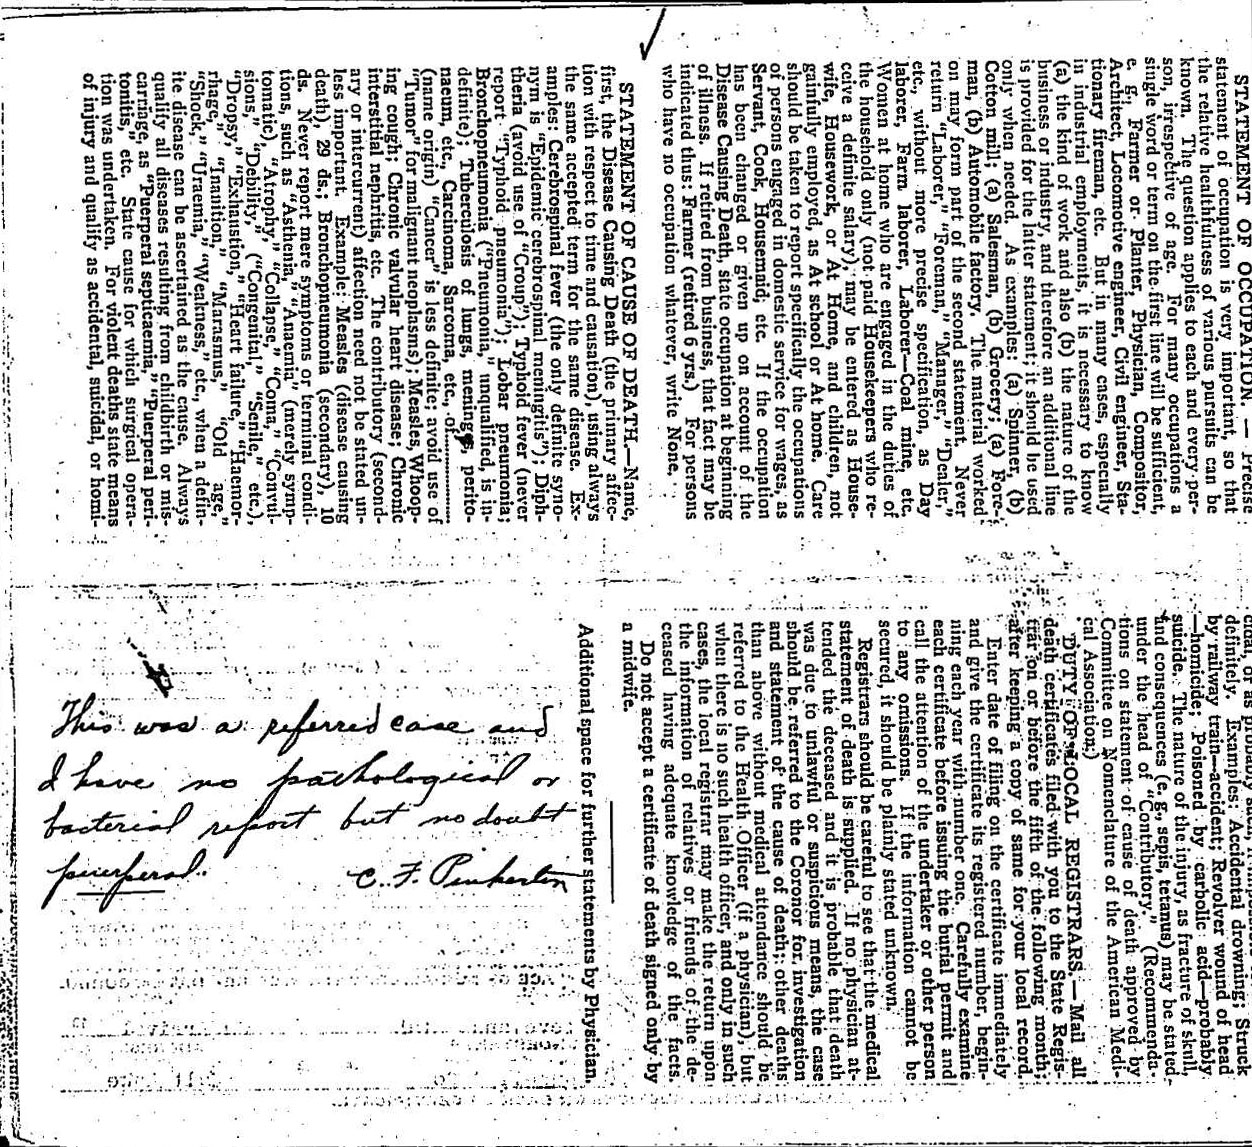 STATEMENT OF OCCUPATION. — Precise
statement of occupation is very important, so that
the relative healthfulness of various pursuits can be
known. The question applies to each and every per-
son, irrespective of age. For many occupations a
single word or term on the first line will be sufficient,
e. g., Farmer or Planter, Physician, Compositor,
Architect, Locomotive engineer, Civil engineer, Sta-
tionary fireman, etc. But in many cases, especially
in industrial employments, it is necessary to know
(a) the kind of work and also (b) the nature of the
business or industry, and therefore an additional line
is provided for the latter statement; it should be used
only when needed. As examples: (a) Spinner, (b)
Cotton mill; (a) Salesman, (b) Grocery; (a) Fore-
man, (b) Automobile factory. The material worked
on may form part of the second statement. Never
return "Laborer," "Foreman," "Manager," "Dealer,"
etc., without more precise specification, as Day
laborer, Farm laborer, Laborer—Coal mine, etc.
Women at home who are engaged in the duties of
the household only (not paid Housekeepers who re-
ceive a definite salary), may be entered as House-
wife, Housework, or At Home, and children, not
gainfully employed, as At school or At home. Care
should be taken to report specifically the occupations
of persons engaged in domestic service for wages, as
Servant, Cook, Housemaid, etc. If the occupation
has been changed or given up on account of the
Disease Causing Death, state occupation at beginning
of illness. If retired from business, that fact may be
indicated thus: Farmer (retired 6 yrs.) For persons
who have no occupation whatever, write None.
STATEMENT OF CAUSE OF DEATH—Name,
first, the Disease Causing Death (the primary affec-
tion with respect to time and causation), using always
the same accepted term for the same disease. Ex-
amples: Cerebrospinal fever (the only definite syno-
nym is "Epidemic cerebrospinal meningitis"); Diph-
theria (avoid use of "Croup"); Typhoid fever (never
report "Typhoid pneumonia"); Lobar pneumonia;
Bronchopneumonia ("Pneumonia," unqualified, is in-
definite); Tuberculosis of lungs, meninges, perito-
naeum, etc., Carcinoma, Sarcoma, etc., of..........
(name origin) "Cancer" is less definite; avoid use of
"Tumor" for malignant neoplasms); Measles, Whoop-
ing cough; Chronic valvular heart disease; Chronic
interstitial nephritis, etc. The contributory (second-
ary or intercurrent) affection need not be stated un-
less important. Example: Measles (disease causing
death), 29 ds.; Bronchopneumonia (secondary), 10
ds. Never report mere symptoms or terminal condi-
tions, such as "Asthenia," "Anaemia" (merely symp-
tomatic), "Atrophy," "Collapse," "Coma," "Convul-
sions," "Debility," ("Congenital," "Senile," etc.),
"Dropsy," "Exhaustion," "Heart failure," "Haemor-
rhage," "Inanition," "Marasmus," "Old age,"
"Shock," "Uraemia," "Weakness," etc., when a defin-
ite disease can be ascertained as the cause. Always
qualify all diseases resulting from childbirth or mis-
carriage, as "Puerperal septicaemia," "Puerperal peri-
tonitis," etc. State cause for which surgical opera-
tion was undertaken. For violent deaths state means
of injury and qualify as accidental, suicidal, or homi-
definitely. Examples: Accidental drowning; Struck
by railway train—accident; Revolver wound of head
—homicide; Poisoned by carbolic acid—probably
suicide. The nature of the injury, as fracture of skull,
and consequences (e. g., sepsis, tetanus) may be stated
under the head of "Contributory." (Recommenda-
tions on statement of cause of death approved by
Committee on Nomenclature of the American Medi-
cal Association.)
DUTY OF LOCAL REGISTRARS.—Mail all
death certificates filed with you to the State Regis-
trar on or before the fifth of the following month;
after keeping a copy of same for your local record.
Enter date of filing on the certificate immediately
and give the certificate its registered number, begin-
ning each year with number one. Carefully examine
each certificate before issuing the burial permit and
call the attention of the undertaker or other person
to any omissions. If the information cannot be
secured, it should be plainly stated unknown.
Registrars should be careful to see that the medical
statement of death is supplied. If no physician at-
tended the deceased and it is probable that death
was due to unlawful or suspicious means, the case
should be referred to the Coronor for investigation
and statement of the cause of death; other deaths
than above without medical attendance should be
referred to the Health Officer (if a physician), but
when there is no such health officer, and only in such
cases, the local registrar may make the return upon
the information of relatives or friends of the de-
ceased having adequate knowledge of the facts.
Do not accept a certificate of death signed only by
a midwife.
Additional space for further statements by Physician.
This was a referred case and
I have no pathological or
bacterial report but no doubt
puerperal.
C. F. Pinkerton